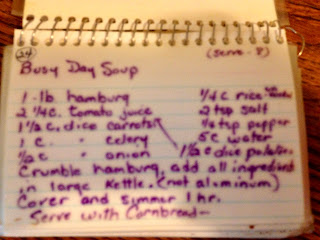 24
(Serve - 8)
Busy Day Soup
1 lb. hamburg
1/4 c rice
2 1/4 c. tomato juice
2 tsp salt
1 1/2 c. dice carrots
1/4 tsp pepper
1 c. " celery
5 c water
1/2 c " onion
1 1/2 c dice potatoes
Crumble hamburg, add all ingredients
in large Kettle. (not aluminum)
Cover and simmer 1 hr.
- Serve with Cornbread -